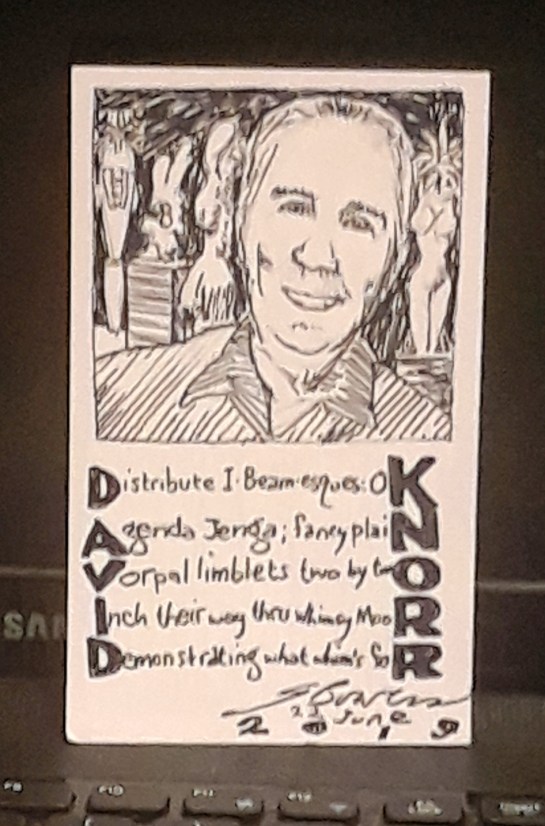 Distribute I-Beam-esques: OK
Agenda Jenga; fancy plaiN
Vorpal limblets two by twO
SAM
Inch their way thru whimsy MooR
Demonstrating what whim's foR
23 June
2019
F9 F10 F11 F12